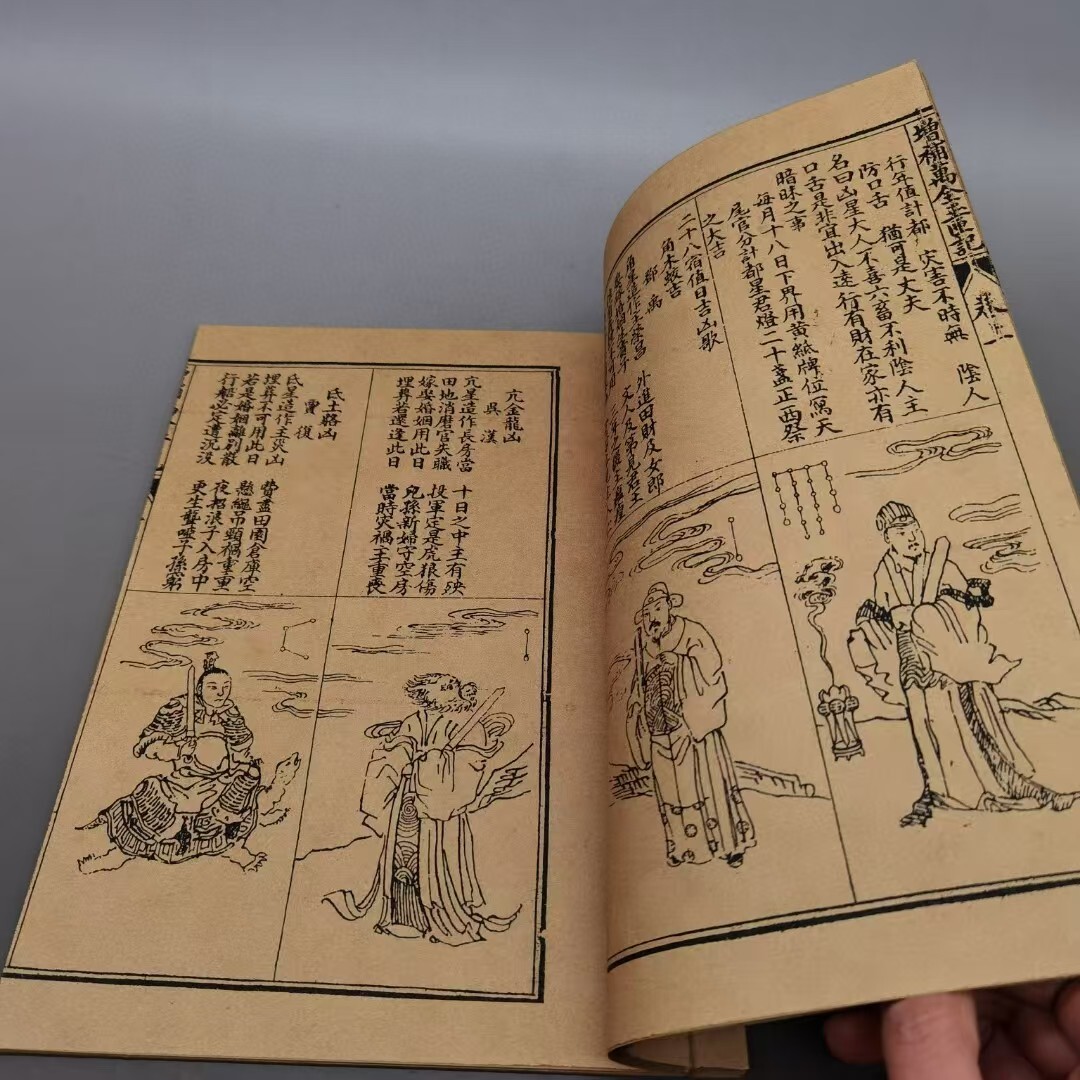 增補萬全玉匣記
行年值計都 災害不時無 陰人
防口舌 猶可是丈夫
名曰凶星大人不喜六畜不利陰人主
口舌是非宜出入遠行有財在家亦有
暗昧之事
每月十八日下界用黃紙牌位寫天
尾宮分計都星君燈二十盞正西祭
之大吉
二十八宿值日吉凶歌
角木蛟吉
鄧禹
角星造作主榮昌 外進田財及女郎
文人及第見君王
亢金龍凶
吳漢
亢星造作長房當 十日之中主有殃
田地消磨官失職 投軍定是虎狼傷
嫁娶婚姻用此日 兒孫新婦守空房
埋葬若還逢此日 當時災禍主重喪
氐土貉凶
賈復
氐星造作主災凶 費盡田園倉庫空
埋葬不可用此日 懸繩吊頸禍重重
若是婚姻離別散 夜招浪子入房中
行船必定遭沉沒 更生聾啞子孫窮